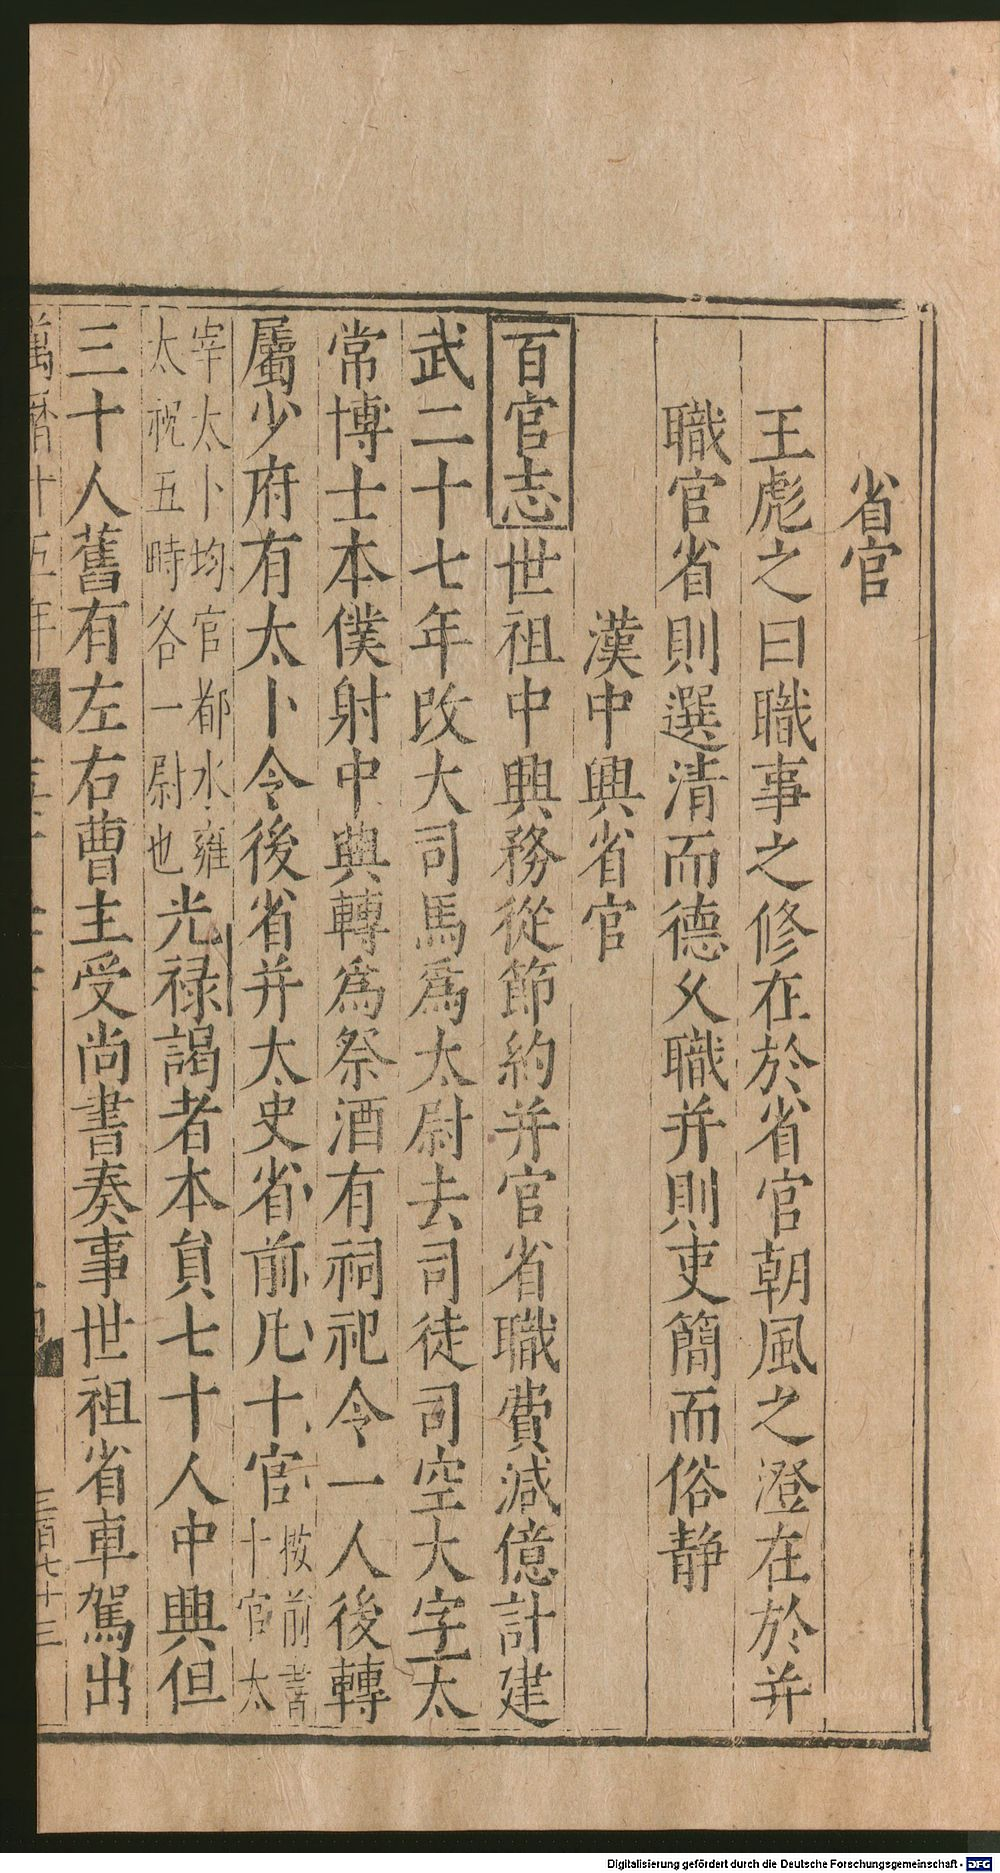 省官
王彪之曰職事之修在於省官朝風之澄在於并
職官省則選清而德乆職并則吏簡而俗静
漢中興省官
百官志世祖中興務從節約并官省職費減億計建
武二十七年改大司馬爲太尉去司徒司空大字太
常博士本僕射中興轉爲祭酒有祠祀令一人後轉
屬少府有太卜令後省并太史省前凡十官按前書十官太
宰太卜均官都水雍太祝五畤各一尉也光禄謁者本員七十人中興但
三十人舊有左右曹主受尚書奏事世祖省車駕出
萬曆十五年
三百七十三
Digitalisierung gefördert durch die Deutsche Forschungsgemeinschaft - DFG